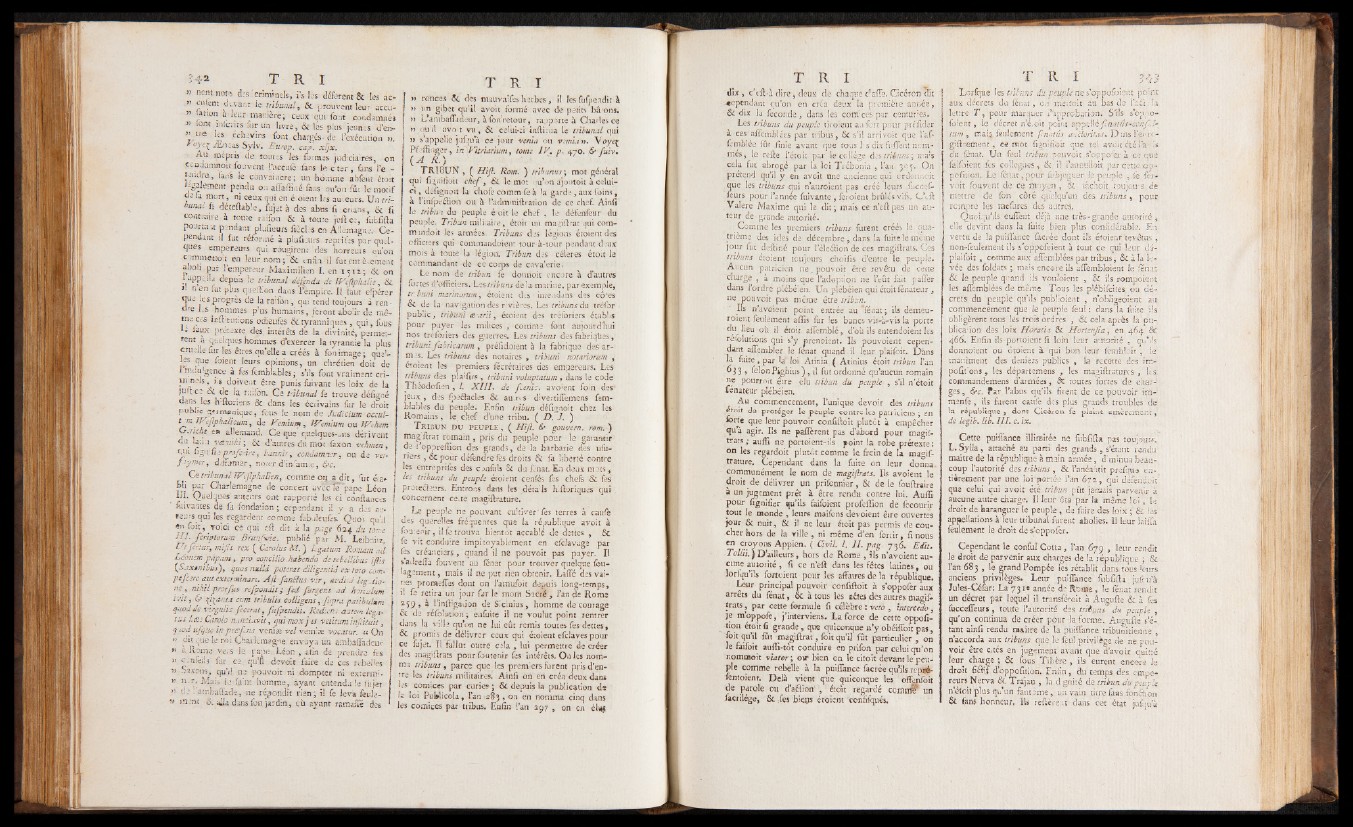 342 T R I
» nent note des criminels, ils les défèrent & les ac-
» cusent devant le tribunal, & prouvent leur accu-
» sation à leur manière; ceux qui sont condamnés
» sont inscrits sur un livre, & les plus jeunes d'en-
» tre les échevins sont chargés de l'exécution ».
Voyez Æneas Sylv. Europ. cap. xxjx.
Au mépris de toutes les formes judiciaires, on
condamnoit souvent l'accusé sans le citer, sans l'en-
tendre, sans le convaincre; un homme absent étoit
légalement pendu ou assassiné sans qu'on sût le motif
de sa mort, ni ceux qui en étoient les auteurs. Un tri-
bunal si détestable, sujet à des abus si crians, & si
contraire à toute raison & à toute justice, subsista
pourtant pendant plusieurs siècles en Allemagne. Ce-
pendant il fut réformé à plusieurs reprises par quel-
ques empereurs qui rougirent des horreurs qu'on
commettoit en leur nom; & enfin il fut entièrement
aboli par l'empereur Maximilien I. en 1512; & on
l'appella depuis le tribunal défendu de Westphalie, &
il n'en fut plus question dans l'empire. Il faut espérer
que les progrès de la raison, qui tend toujours à ren-
dre les hommes plus humains, feront abolir de mê-
me ces institutions odieuses & tyranniques, qui, sous
le faux prétexte des intérêts de la divinité, permet-
tent à quelques hommes d'exercer la tyrannie la plus
cruelle sur les êtres qu'elle a créés à son image; quel-
les que soient leurs opinions, un chrétien doit de
l'indulgence à ses semblables; s'ils sont vraiment cri-
minels, ils doivent être punis suivant les loix de la
justice & de la raison. Ce tribunal se trouve désigné
dans les historiens & dans les écrivains sur le droit
public germanique, sous le nom de Judicium occul-
tum Westphalicum, de Vemium, Wemium ou Wehem
Gericht en allemand. Ce que quelques-uns dérivent
du latin væmihi; & d'autres du mot saxon vehmen,
qui signifie proscrire, bannir, condamner, ou de ver-
feymer, diffamer, noter d'infamie, &c.
Ce tribunal Westphalien, comme on a dit, fut éta-
bli par Charlemagne de concert avec le pape Léon
III. Quelques auteurs ont rapporté les circonstances
suivantes de sa fondation; cependant il y a des au-
teurs qui les regardent comme fabuleuses. Quoi qu'il
en soit, voici ce qui est dit à la page 624 du tome
III. scriptorum Brunswic. publié par M. Leibnitz.
» dit que le roi Charlemagne envoya un ambassadeur
» à Rome vers le pape Léon, afin de prendre ses
» conseils sur ce qu'il devoit faire de ces rebelles
» Saxons, qu'il ne pouvoit ni dompter ni extermi-
» ner. Mais le saint homme, ayant entendu le sujet
» de l'ambassade, ne répondit rien; il se leva seule-
» ment & alla dans son jardin, où ayant ramassé des
T R I
» ronces & des mauvaises herbes, il les suspendit à
» un gibet qu'il avoit formé avec de petits bâtons.
» L'ambassadeur, à son retour, rapporta à Charles ce
» qu'il avoit vu, & celui-ci institua le tribunal qui
» s'appelle jusqu'à ce jour venia ou vemiæ ». Voyez
Pfeffinger, in Vitriarium, tome IV, p. 470. & suiv.
(A R.)
TRIBUN, (Hist. Rom.) tribunus; mot général
qui signifioit chef, & le mot qu'on ajoutoit à celui-
ci, désignoit la chose commise à la garde, aux soins,
à l'inspection ou à l'administration de ce chef. Ainsi
le tribun du peuple étoit le chef, le défenseur du
peuple. Tribun militaire, étoit un magistrat qui com-
mandoit les armées. Tribuns des légions étoient des
officiers qui commandoient tour-à-tour pendant deux
mois à toute la légion. Tribun des céleres étoit le
commandant de ce corps de cavalerie.
Le nom de tribun se donnoit encore à d'autres
sortes d'officiers. Les tribuns de la marine, par exemple,
tribuni marinorum, étoient des intendans des côtes
& de la navigation des rivières. Les tribuns du trésor
public, tribuni ærarii, étoient des trésoriers établis
pour payer les milices, comme sont aujourd'hui
nos trésoriers des guerres. Les tribuns des fabriques,
tribuni fabricarum, présidoient à la fabrique des ar-
mes. Les tribuns des notaires, tribuni notariorum,
étoient les premiers sécrétaires des empereurs. Les
tribuns des plaisirs, tribuni voluptatum, dans le code
Théodosien, l. XIII. de scenic. avoient soin des
jeux, des spectacles & autres divertissemens sem-
blables du peuple. Enfin tribun désignoit chez les
Romains, le chef d'une tribu. (D. J.)
TRIBUN DU PEUPLE, (Hist. & gouvern. rom.)
magistrat romain, pris du peuple pour le garantir
de l'oppression des grands, de la barbarie des usu-
riers, & pour défendre ses droits & sa liberté contre
les entreprises des consuls & du sénat. En deux mots,
les tribuns du peuple étoient censés ses chefs & ses
protecteurs. Entrons dans les détails historiques qui
concernent cette magistrature.
Le peuple ne pouvant cultiver ses terres à cause
des querelles fréquentes que la république avoit à
soutenir, il se trouva bientôt accablé de dettes, &
se vit conduire impitoyablement en esclavage par
ses créanciers, quand il ne pouvoit pas payer. Il
s'adressa souvent au sénat pour trouver quelque sou-
lagement, mais il ne put rien obtenir. Lassé des vai-
nes promesses dont on l'amusoit depuis long-temps,
il se retira un jour sur le mont Sacré, l'an de Rome
259, à l'instigation de Sicinius, homme de courage
& de résolution; ensuite il ne voulut point rentrer
dans la ville qu'on ne lui eût remis toutes ses dettes,
& promis de délivrer ceux qui étoient esclaves pour
ce sujet. Il fallut outre cela, lui permettre de créer
des magistrats pour soutenir ses intérêts. On les nom-
ma tribuns, parce que les premiers furent pris d'en-
tre les tribuns militaires. Ainsi on en créa deux dans
les comices par curies; & depuis la publication de
la loi Publicola, l'an 283, on en nomma cinq dans
les comices par tribus. Enfin l'an 297, on en élut
T R I
dix, c'est-à-dire, deux de chaque classe. Cicéron dit
cependant qu'on en créa deux la première année,
& dix la seconde, dans les comices par centuries.
Les tribuns du peuple tiroient au sort pour présider
à ces assemblées par tribus, & s'il arrivoit que l'as-
semblée fût finie avant que tous les dix fussent nom-
més, le reste l'étoit par le collège des tribuns; mais
cela fut abrogé par la loi Trébonia, l'an 305. On
prétend qu'il y en avoit une ancienne qui ordonnoit
que les tribuns qui n'auroient pas créé leurs succes-
seurs pour l'année suivante, seroient brûlés vifs. C'est
Valère Maxime qui le dit; mais ce n'est pas un au-
teur de grande autorité.
Comme les premiers tribuns furent créés le qua-
trième des ides de décembre, dans la suite le même
jour fut destiné pour l'élection de ces magistrats. Ces
tribuns étoient toujours choisis d'entre le peuple.
Aucun patricien ne pouvoit être revêtu de cette
charge, à moins que l'adoption ne l'eût fait passer
dans l'ordre plébéien. Un plébéien qui étoit sénateur,
ne pouvoit pas même être tribun.
Ils n'avoient point entrée au sénat; ils demeu-
roient seulement assis sur les bancs vis-à-vis la porte
du lieu où il étoit assemblé, d'où ils entendoient les
résolutions qui s'y prenoient. Ils pouvoient cepen-
dant assembler le sénat quand il leur plaisoit. Dans
la suite, par la loi Atinia (Atinius étoit tribun l'an
633, selon Pighius), il fut ordonné qu'aucun romain
ne pourroit être élu tribun du peuple, s'il n'étoit
sénateur plébéien.
Au commencement, l'unique devoir des tribuns
étoit de protéger le peuple contre les patriciens; en
sorte que leur pouvoir consistoit plutôt à empêcher
qu'à agir. Ils ne passèrent pas d'abord pour magis-
trats; aussi ne portoient-ils point la robe prétexte:
on les regardoit plutôt comme le frein de la magis-
trature. Cependant dans la suite on leur donna
communément le nom de magistrats. Ils avoient le
droit de délivrer un prisonnier, & de le soustraire
à un jugement prêt à être rendu contre lui. Aussi
pour signifier qu'ils faisoient profession de secourir
tout le monde, leurs maisons devoient être ouvertes
jour & nuit, & il ne leur étoit pas permis de cou-
cher hors de la ville, ni même d'en sortir, si nous
en croyons Appien. (Civil. l. II. pag. 736. Edit.
Tollii.) D'ailleurs, hors de Rome, ils n'avoient au-
cune autorité, si ce n'est dans les fêtes latines, ou
lorsqu'ils sortoient pour les affaires de la république.
Leur principal pouvoir consistoit à s'opposer aux
arrêts du sénat, & à tous les actes des autres magis-
trats, par cette formule si célèbre: veto, intercedo,
je m'oppose, j'interviens. La force de cette opposi-
tion étoit si grande, que quiconque n'y obéissoit pas,
soit qu'il fût magistrat, soit qu'il fût particulier, on
le faisoit aussi-tôt conduire en prison par celui qu'on
nommoit viator; ou bien on le citoit devant le peu-
ple comme rebelle à la puissance sacrée qu'ils repré-
sentoient. Delà vient que quiconque les offensoit
de parole ou d'action, étoit regardé comme un
sacrilège, & ses biens étoient confisqués.
T R I 343
Lorsque les tribuns du peuple ne s'opposoient point
aux décrets du sénat, on mettoit au bas de l'acte la
lettre T, pour marquer l'approbation. S'ils s'oppo-
soient, le décret n'étoit point appellé senatus-consul-
tum, mais seulement senatûs auctoritas. Dans l'enre-
gistrement, ce mot signifioit que tel avoit été l'avis
du sénat. Un seul tribun pouvoit s'opposer à ce que
faisoient ses collègues, & il l'annulloit par cette op-
position. Le sénat, pour subjuguer le peuple, se ser-
voit souvent de ce moyen, & tâchoit toujours de
mettre de son côté quelqu'un des tribuns, pour
rompre les mesures des autres.
Quoiqu'ils eussent déjà une très-grande autorité,
elle devint dans la suite bien plus considérable. En
vertu de la puissance sacrée dont ils étoient revêtus,
non-seulement ils s'opposoient à tout ce qui leur dé-
plaisoit, comme aux assemblées par tribus, & à la le-
vée des soldats; mais encore ils assembloient le sénat
& le peuple quand ils vouloient, & ils rompoient
les assemblées de même. Tous les plébiscites ou dé-
crets du peuple qu'ils publioient, n'obligeoient au
commencement que le peuple seul: dans la suite ils
obligèrent tous les trois ordres, & cela après la pu-
blication des loix Horatia & Hortensia, en 464 &
466. Enfin ils portoient si loin leur autorité, qu'ils
donnoient ou ôtoient à qui bon leur sembloit, le
maniment des deniers publics, la recette des im-
positions, les départemens, les magistratures, les
commandemens d'armées, & toutes sortes de char-
ges, &c. Par l'abus qu'ils firent de ce pouvoir im-
mense, ils furent cause des plus grands troubles de
la république, dont Cicéron se plaint amèrement,
de legib. lib. III. c. ix.
Cette puissance illimitée ne subsista pas toujours.
L. Sylla, attaché au parti des grands, s'étant rendu
maître de la république à main armée, diminua beau-
coup l'autorité des tribuns, & l'anéantit presque en-
tièrement par une loi portée l'an 672, qui défendoit
que celui qui avoit été tribun pût jamais parvenir à
aucune autre charge. Il leur ôta par la même loi, le
droit de haranguer le peuple, de faire des loix; & les
appellations à leur tribunal furent abolies. Il leur laissa
seulement le droit de s'opposer.
Cependant le consul Cotta, l'an 679, leur rendit
le droit de parvenir aux charges de la république; &
l'an 683, le grand Pompée les rétablit dans tous leurs
anciens privilèges. Leur puissance subsista jusqu'à
Jules-César. La 731e année de Rome, le sénat rendit
un décret par lequel il transféroit à Auguste & à ses
successeurs, toute l'autorité des tribuns du peuple,
qu'on continua de créer pour la forme. Auguste s'é-
tant ainsi rendu maître de la puissance tribunitienne,
n'accorda aux tribuns que le seul privilège de ne pou-
voir être cités en jugement avant que d'avoir quitté
leur charge; & sous Tibère, ils eurent encore le
droit fictif d'opposition. Enfin, du temps des empe-
reurs Nerva & Trajan, la dignité de tribun du peuple
n'étoit plus qu'un fantôme, un vain titre sans fonction
& sans honneur. Ils restèrent dans cet état jusqu'à